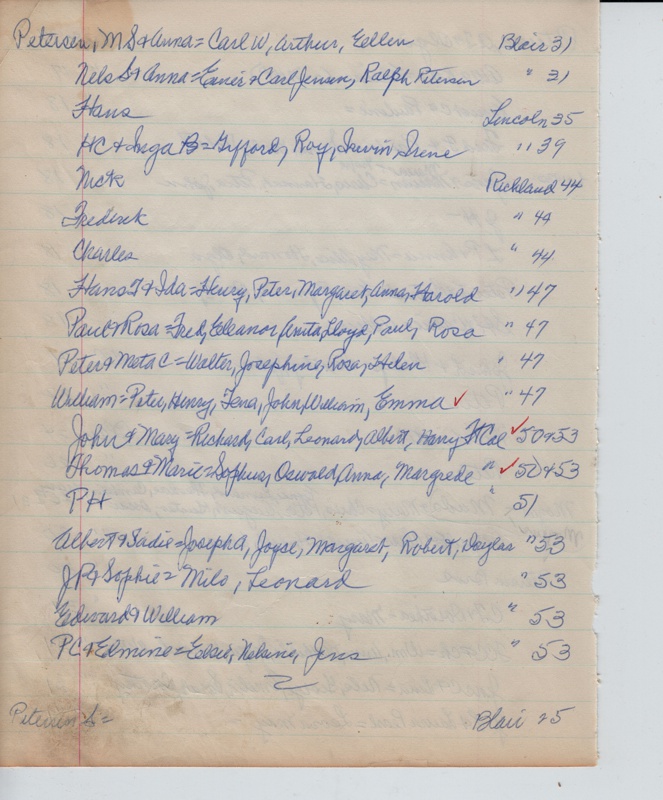 Petersen, M S & Anna = Carl W, Arthur, Eellen Blair 31
Nels S & Anna = Einer & Carl Jensen, Ralph Petersen " 31
Hans Lincoln 35
HC & Inga B = Gifford, Roy, Irwin, Irene " 39
Nick Richland 44
Frederick " 44
Charles " 44
Hans T & Ida = Henry, Peter, Margaret, Anna, Harold " 47
Paul & Rosa = Fred, Eleanor, Anita, Lloyd, Paul, Rosa " 47
Peter & Meta C = Walter, Josephine, Rosa, Helen " 47
William = Peter, Henry, Tena, John, William, Emma ✓ " 47
John & Mary = Richard, Carl, Leonard, Albert, Harry Ft Cal ✓ 50 & 53
Thomas & Marie = Sophus, Oswald, Anna, Margrede " ✓ 50 & 53
PH " 51
Albert & Sadie = Joseph A, Joyse, Margaret, Robert, Douglas " 53
J P & Sophie = Milo, Leonard " 53
Edward & William " 53
PC & Edmine = Elsie, Nelsine, Jens " 53
Petersen S = Blair 25